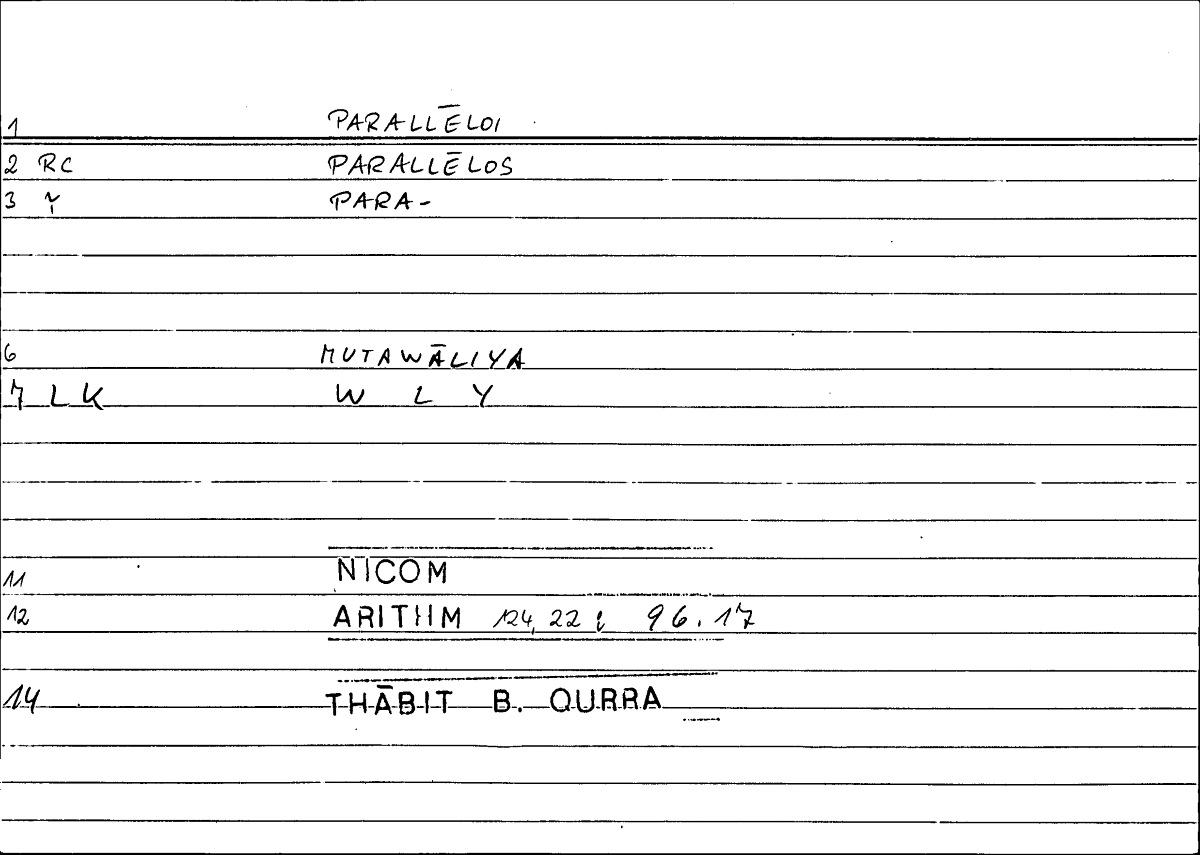 1 PARALLĒLOI
2 RC PARALLĒLOS
3 PARA-
6 MUTAWĀLIYA
7 LK W L Y
11 NICOM
12 ARITHM 124,22; 96.17
14 THĀBIT B. QURRA